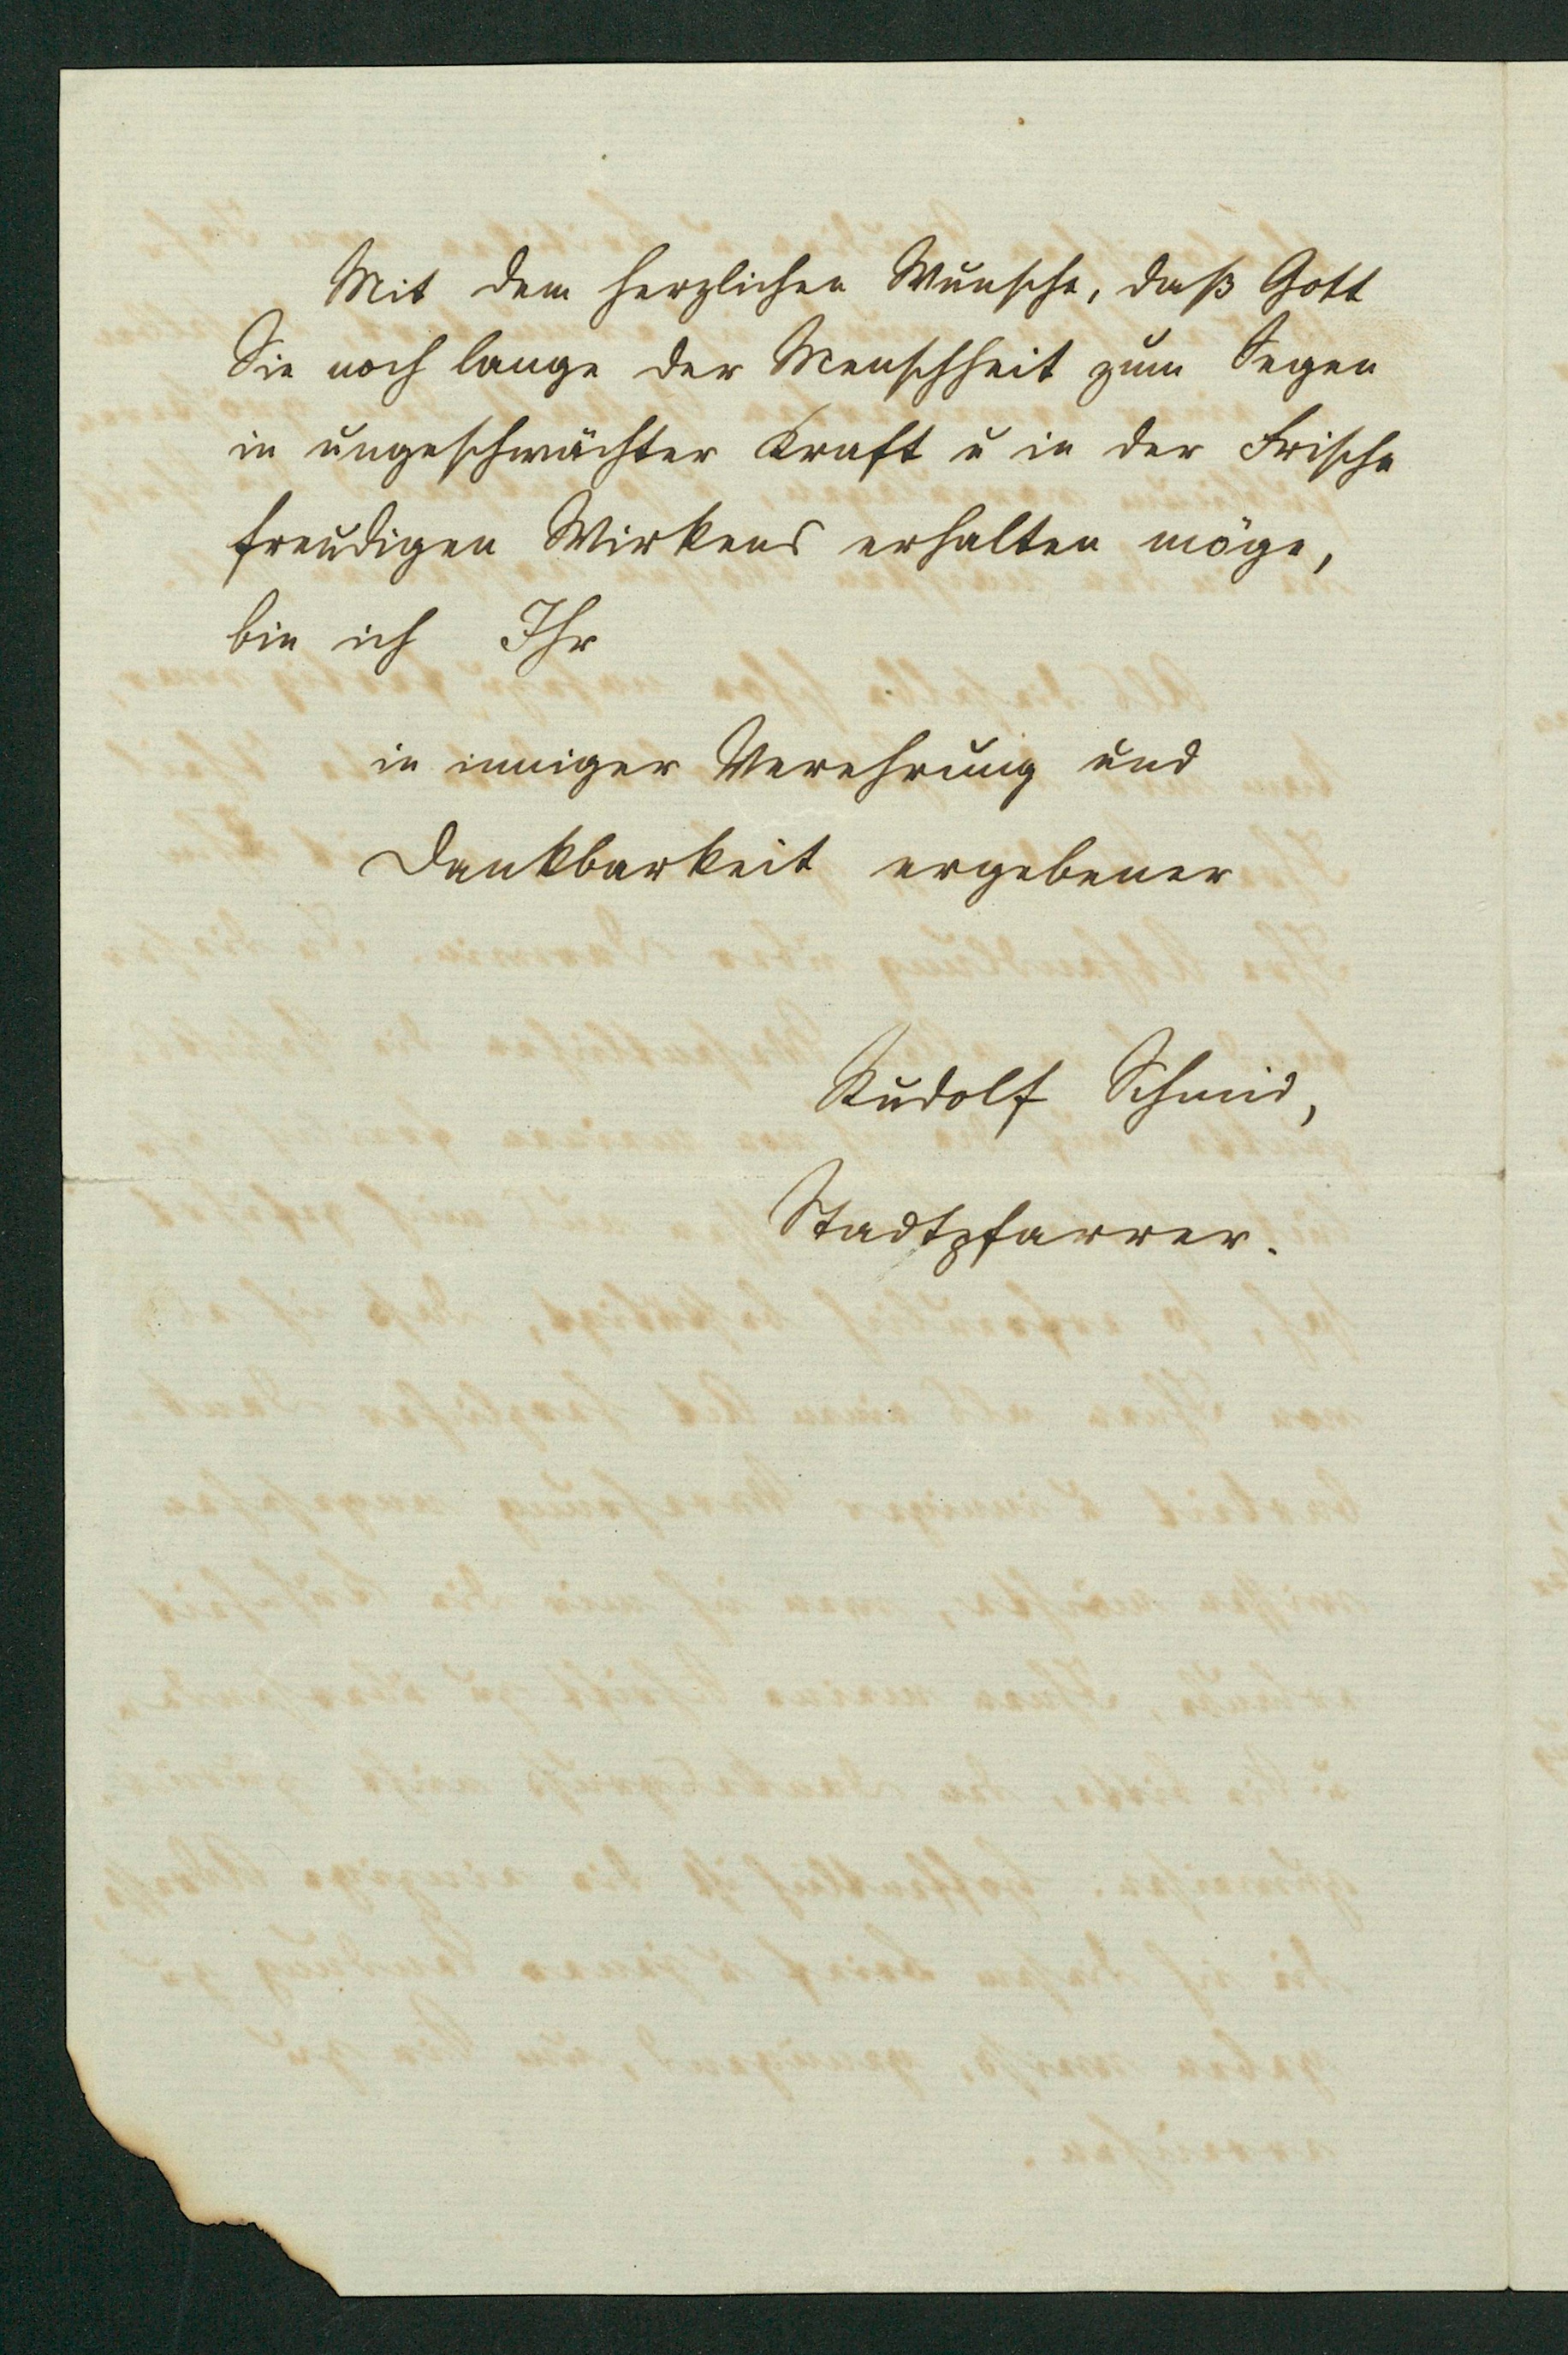 Mit dem herzlichen Wunsche, daß Gott
Sie noch lange der Menschheit zum Segen
in ungeschwächter Kraft u in der Frische
freudigen Wirkens erhalten möge,
bin ich Ihr
in inniger Verehrung und
Dankbarkeit ergebener
Rudolf Schmid,
Stadtpfarrer.